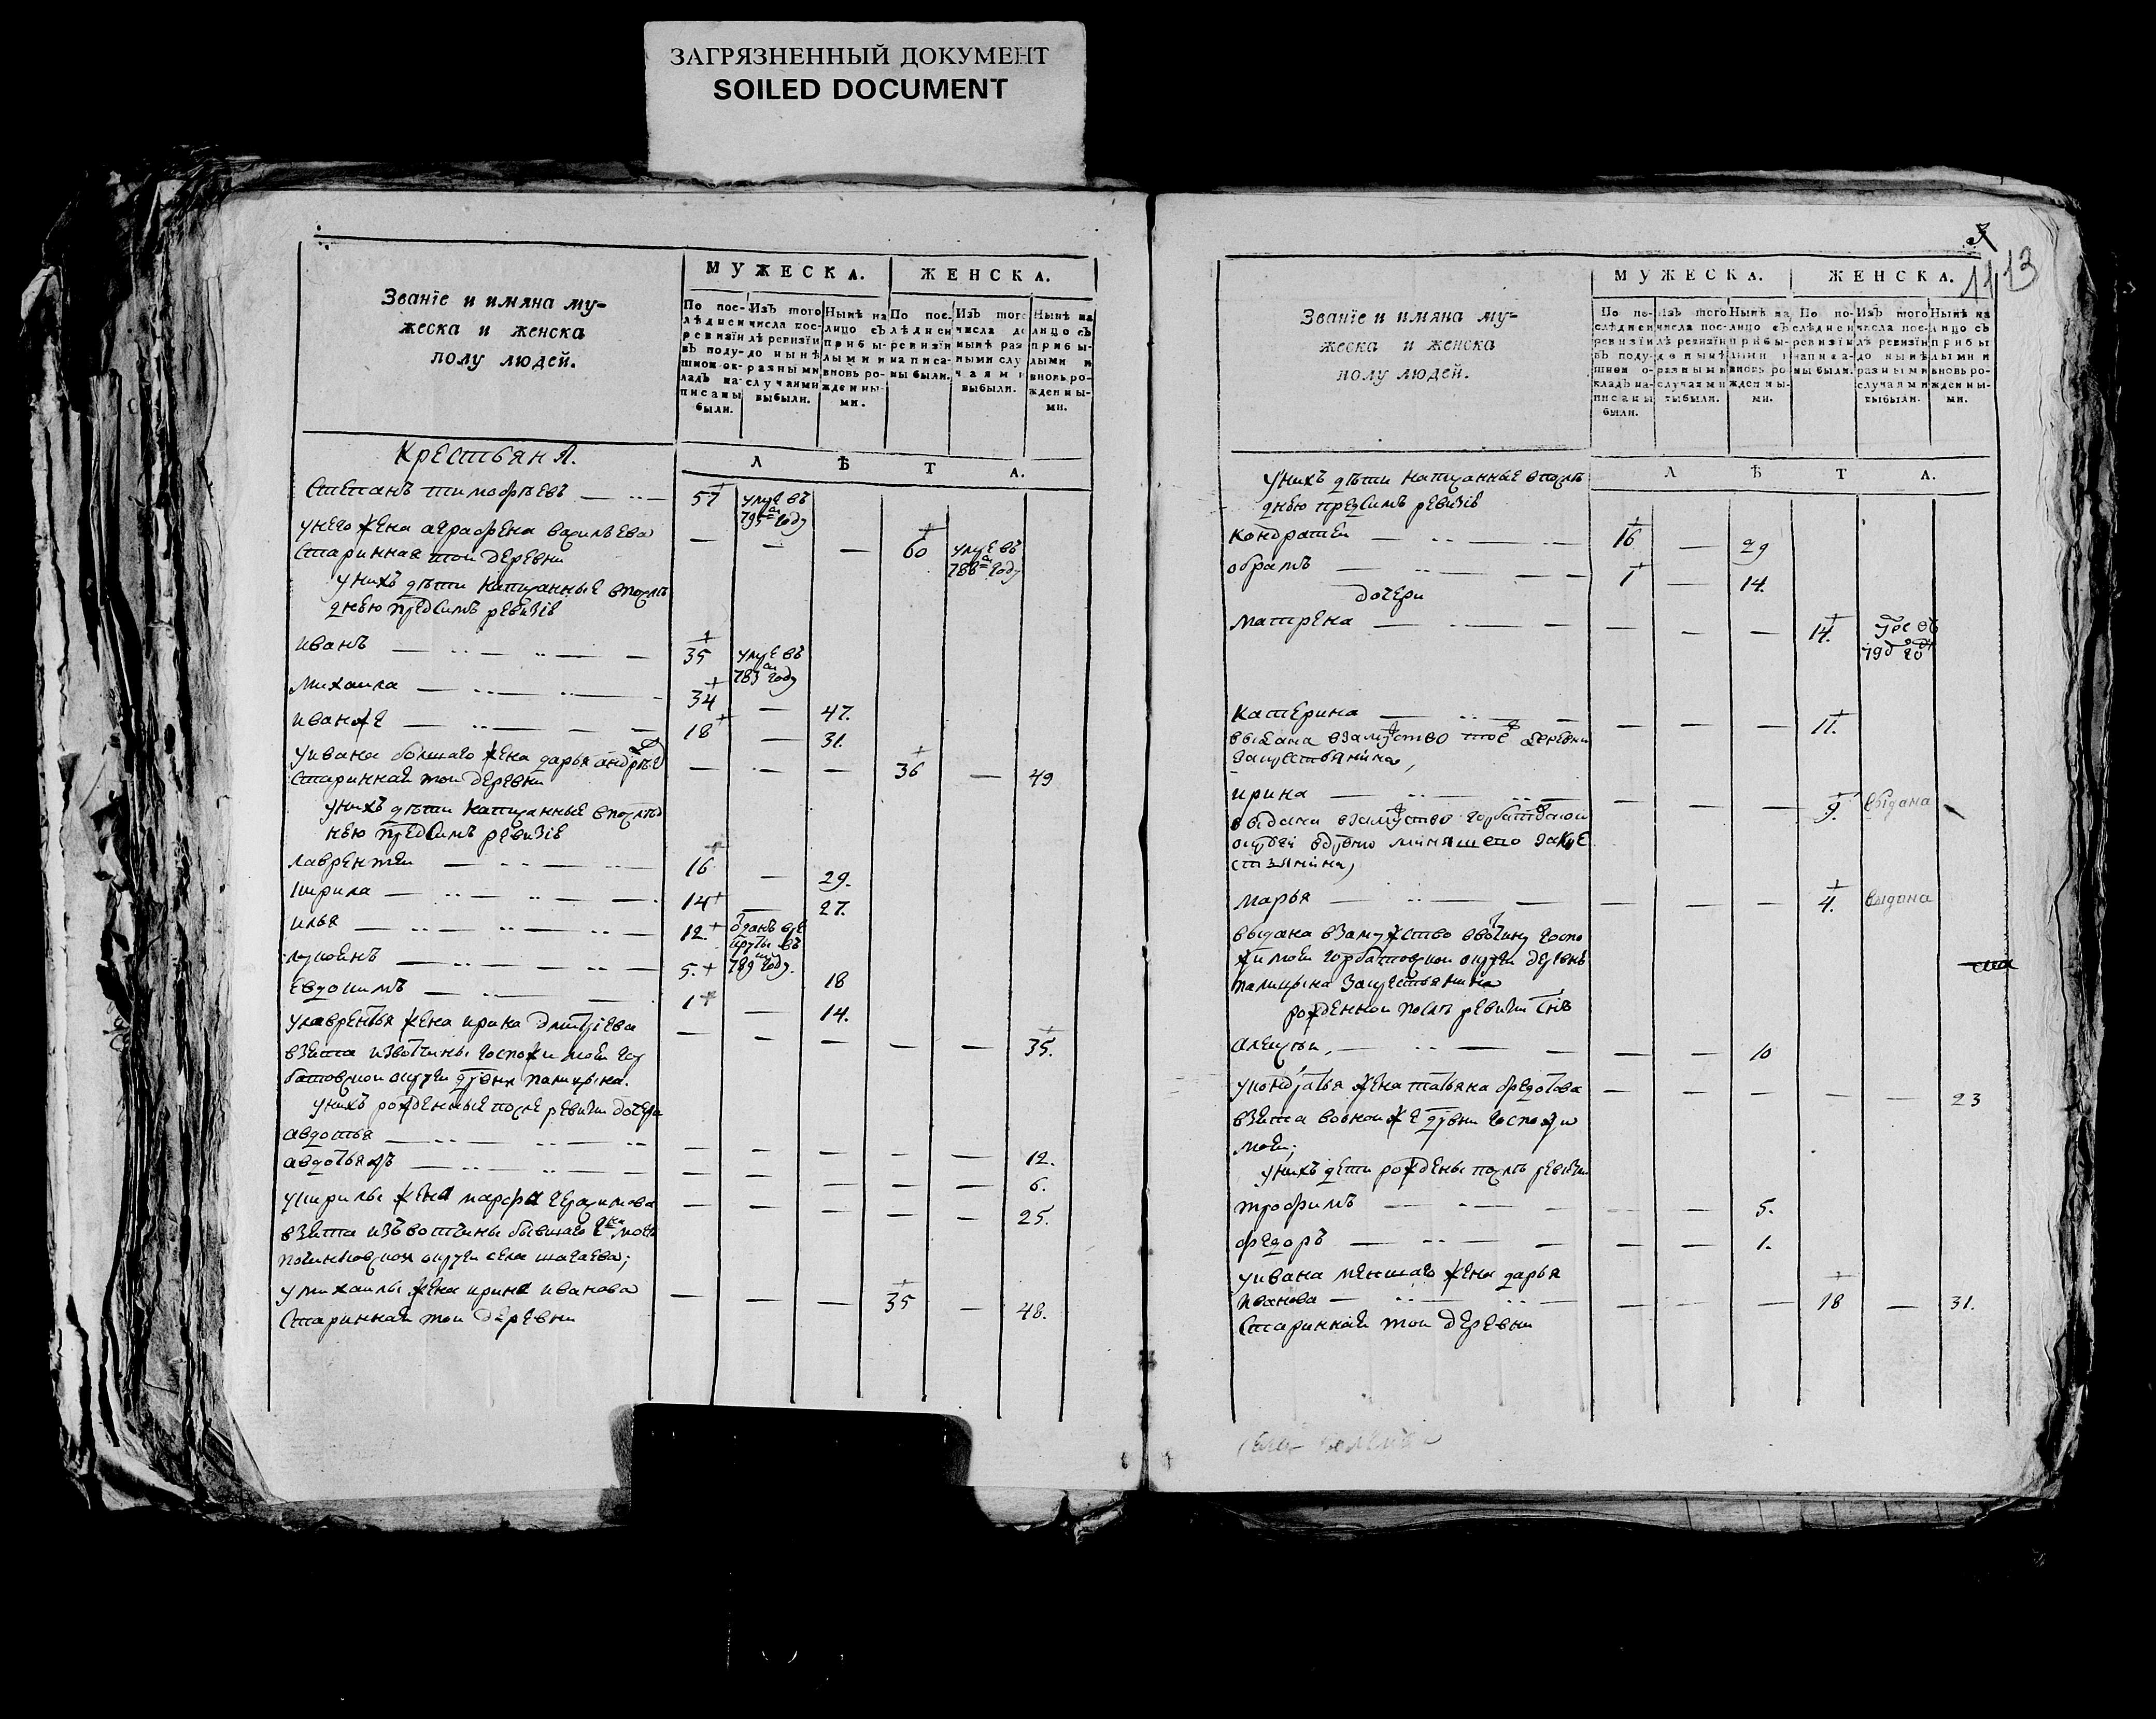 ЗАГРЯЗНЕННЫЙ ДОКУМЕНТ
SOILED DOCUMENT
Званїе и имяна му-
жеска и женска
полу людей.
МУЖЕСКА.
ЖЕНСКА.
По пос-
лѣдней
ревизїи
въ поду-
шном ок-
ладѣ на-
писаны
были.
Изъ того
числа пос-
лѣ ревизїи
до нынѣ
разными
случаями
выбыли.
Нынѣ на
лицо съ
прибы-
лыми и
вновь ро-
жденны-
ми.
По пос-
лѣдней
ревизїи
написа-
ны были.
Изъ того
числа до
нынѣ раз
ными слу
чаями
выбыли.
Нынѣ на
лицо съ
прибы-
лыми и
вновь ро-
жденны-
ми.
ЛѢТА.
Крестьяня.
Степанъ тимофѣевъ 57 умре въ 795м году
у него жена аграфена васильева
старинная той деревни 60 умре въ 788м году
у нихъ дѣти написанныя в послѣ
днею пред симъ ревизїе
иванъ 35 умре въ 783м году
михаила 34 — 47.
иван же 18 — 31.
у ивана болшаго жена дарья андрѣев
стариннаѣ той деревни 36 — 49
у нихъ дѣти написанныя в послѣд
нею пред симъ ревизїе
лаврентеи 16 — 29.
кирила 14 — 27.
илья 12. в рекруты въ 789 году.
5. 18
евдокимъ 1 — 14.
у лаврентья жена ирина дмитрїева
взята из вотчины госпожи моеи гор
батовской округи дрвни палицына. 35.
у нихъ рожденные после ревизїи дочери
авдотья 12.
авдотья жъ 6.
у кирилы жена марфа герасимова 25.
взята изъ вотчины бывшаго
починковской округи села шагаева;
у михаилы жена ирина иванова 35 — 48.
стариннаѣ той деревни
3
11 13
Званїе и имяна му-
жеска и женска
полу людей.
МУЖЕСКА.
ЖЕНСКА.
По по-
слѣдней
ревизїи
въ поду-
шном о-
кладѣ на-
писаны
были.
Изъ того
числа пос-
лѣ ревизїи
до нынѣ
разными
случаями
выбыли.
Нынѣ на
лицо съ
прибы-
лыми и
вновь ро
жденны-
ми.
По по-
слѣдней
ревизїи
написа-
ны были.
Изъ того
числа пос-
лѣ ревизїи
до нынѣ
разными
случаями
выбыли.
Нынѣ на
лицо съ
прибы
лыми и
вновь ро-
жденны-
ми.
ЛѢТА.
у нихъ дѣти написанные в послѣ
днею пред симъ ревизїе
кондратеи 16 — 29
абрамъ 1 — 14.
дочери
матрена 14.
катерина 11.
выдана в замужство той деревни
за крестьянина,
ирина 9. выдана
выдана в замужство горбатовской
округи
стьянина,
марья 4. выдана
выдана в замужство в вотчину госпо
жи моеи горбатовской округи деревнѣ
палицына за крестьянина
рожденной послѣ ревизїи снъ
алексѣи, 10
у кондратья жена татьяна федотова 23
взята во оной же дрвни госпожи
моеи;
у нихъ дети рождены послѣ ревизїи
трофимъ 5.
федоръ 1.
у ивана меншаго жена дарья
иванова 18 — 31.
стариннаѣ той деревни